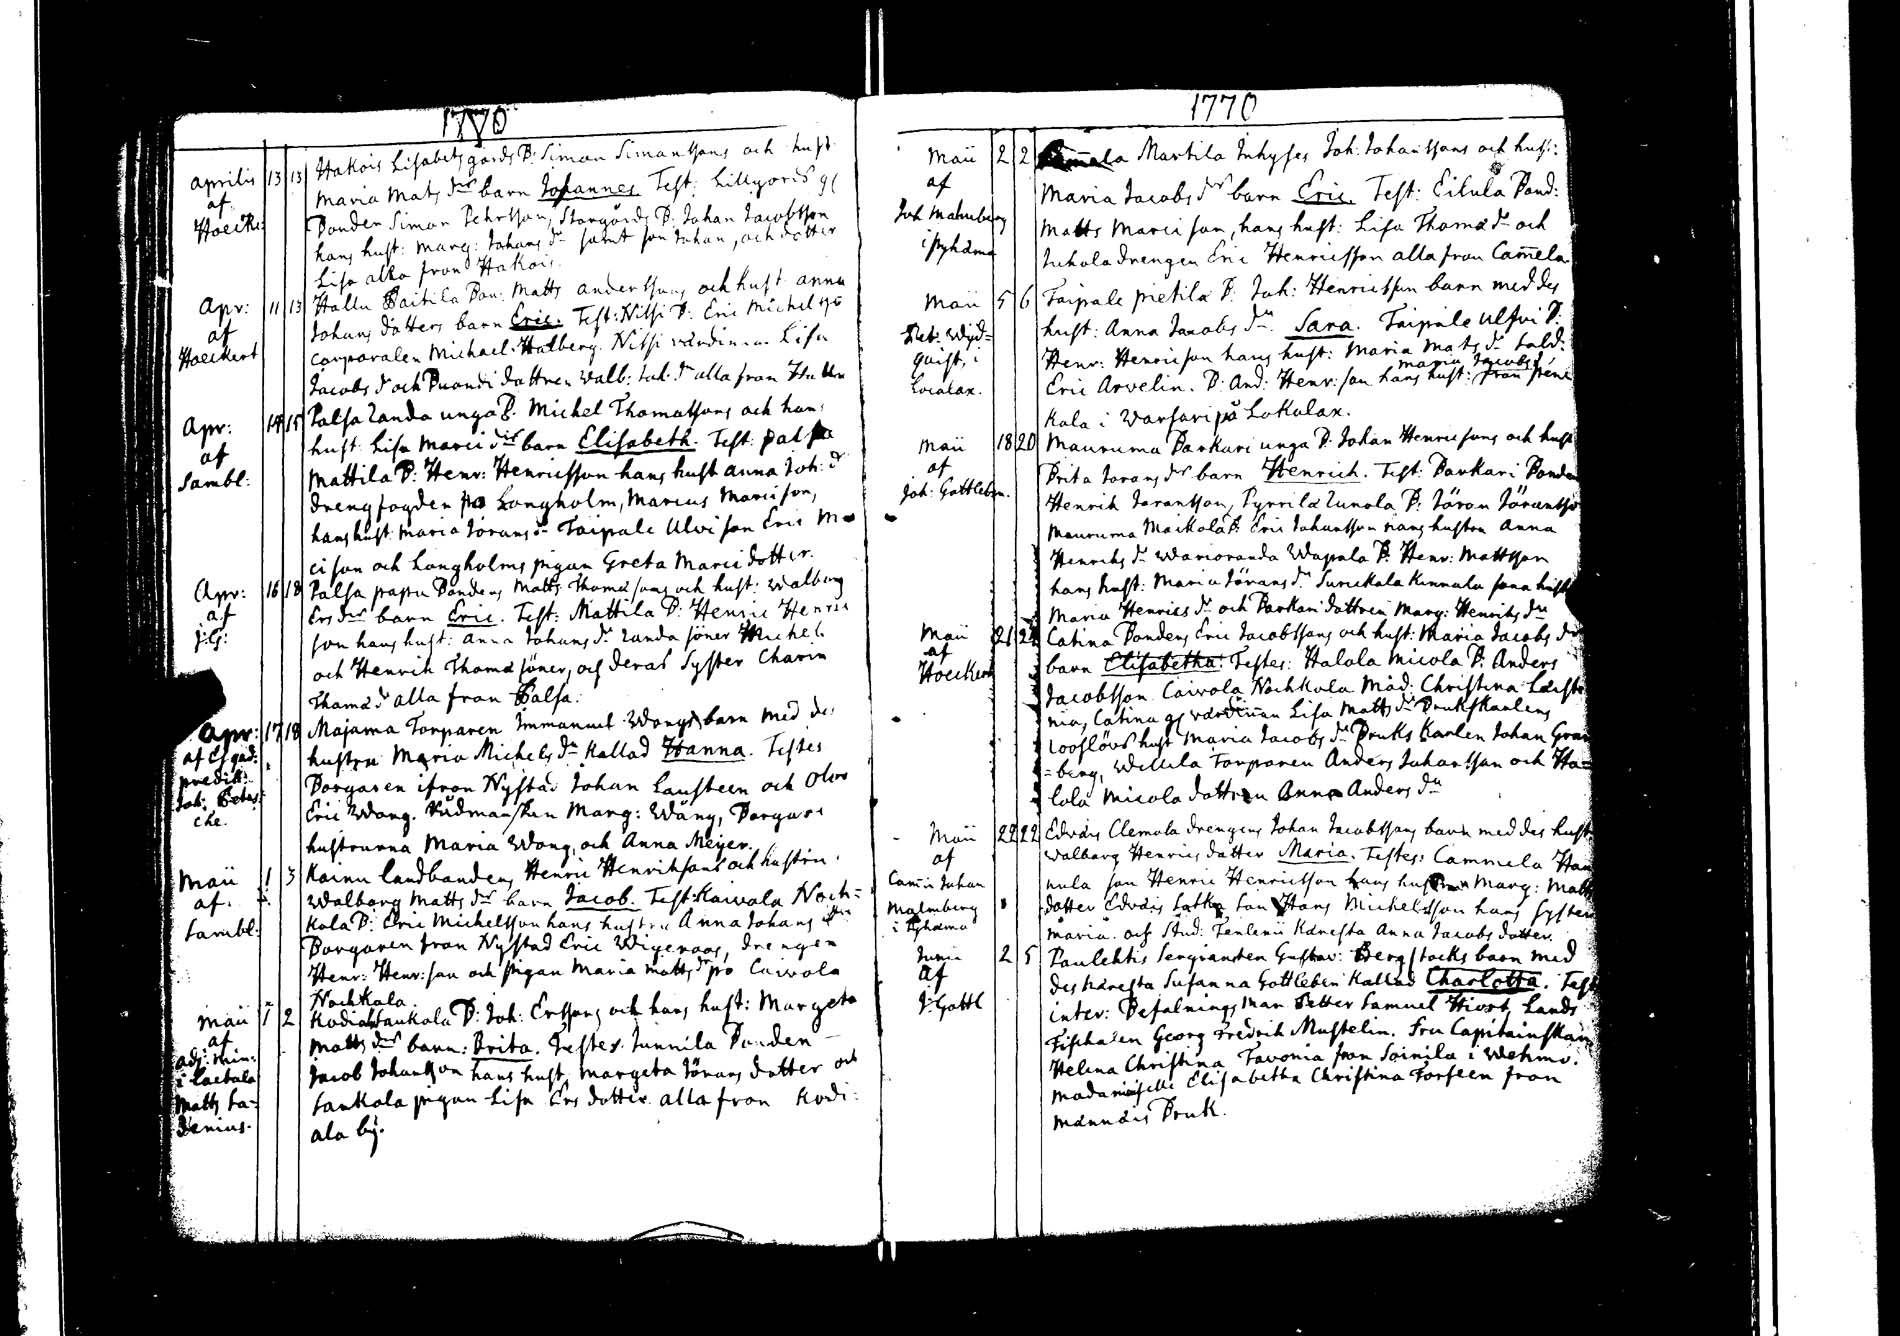 1770
Aprilis 13 13 Hakois Lisabets gårds B: Simon Simonssons och hust:
af Maria Mats dr barn Johannes. Test: Lillgårds gl
Hoeck: Bonden Simon Pehrsson, Storgårds B: Johan Jacobsson
hans hust: Marg: Johans dr samt son Johan, och dotter
Lisa alla från Hakois.
Apr: 11 13 Hallu Paitila Bon: Matts Anderssons och hust Anna
af Johans dotters barn Eric. Test: Nissi B: Eric Michelsson
Hoeckert Corporalen Michael Halberg. Nissi värdinna Lisa
Jacobs dr och Buandi dottren Walb: Joh: dr alla från Hallu
Apr: 14 15 Palsa Zanda unga B. Michel Thomassons och hans
af hust: Lisa Marci dr barn Elisabeth. Test: Palsa
Sambl: Mattila B: Henr: Henricsson hans hust Anna Joh: dr
drengfogden på Longholm, Marcus Marcisson,
hans hust Maria Jörans dr Taipale Ulvi son Eric Mar
ci son och Longholms pigan Greta Marci dotter.
Apr: 16 18 Palsa pappu Bondens Matts Thomæsons och hust: Walborg
af Ers dr barn Eric. Test: Mattila B: Henric Henric
J:G: son hans hust: Anna Johans dr Zanda söner Michel
och Henrik Thomæ söner, och deras Syster Charin
Thomæ dr alla från Palsa:
Apr: 17 18 Majama Torparen Immanuel Wongs barn med des
af Esqad: hustru Maria Michels dr kallad Hanna. Testes
predik: Borgaren ifrån Nystad Johan Lausteen och Olof
Joh: Petes: Eric Wong. Rådmanskan Marg: Wång, Borgare
che. hustrurna Maria Wong och Anna Meijer.
Maii 1 3 Kainu landbondens Henric Henriksons och hustru
af. Walborg Matts dr barn Jacob. Test: Kaivola Noch=
Sambl: kola B: Eric Michelsson hans hustru Anna Johans dr
Borgaren från Nystad Eric Wigenaas, drengen
Henr: Henr: son och pigan Maria Matts dr på Caivola
Nochkola.
Maii 1 2 Kodiala Saukola B: Joh: Erssons och hans hust: Margeta
af Matts dr barn: Brita. Testes Junnila Bonden
adj: Min: Jacob Johansson hans hust: Margeta Jörans dotter och
i Laetala Saukola pigan Lisa Ers dotter alla från Kodi:
Matts Sa= ala by.
denius.
1770
Maii 2 2 Cammela Martila Inhyses Joh: Johanssons och hust:
af Maria Jacobs dr barn Eric. Test: Eikula Bond:
Joh Malmberg Matts Marci son, hans hust: Lisa Thomæ dr och
i Pyhäma Juhola drengen Eric Henricsson alla från Camela
Maii 5 6 Taipale pietilä B: Joh: Henricsson barn med des
Pet: Wid= hust: Anna Jacobs dr. Sara. Taipale Ulfvi B:
quist, i Henr: Henricson hans hust: Maria Mats dr Sold:
Localax. Eric Arvelin. B: And: Henr: son hans hust: Maria Jacobs dr från Peni
kala i Warsari på Lokalax.
Maii 18 20 Mauruma Parkari unga B: Johan Henricsons och hust
af Brita Jörans dr barn Henrich. Test: Parkari Bonden
Joh: Gottleben. Henrik Jöransson, Pyrrilä Zunola B: Jöran Jöransson
Mauruma Mackola B: Eric Johansson hans hustru Anna
Henriks dr Warioranda Wapala B: Henr: Mattsson
hans hust: Maria Jörans dr Surickala Kunnala sona hust
Maria Henrics dr och Parkari dottren Marg: Henriks dr
Maii 21 22 Catina Bondens Eric Jacobssons och hust: Maria Jacobs dr
af barn Elisabetha: Testes: Halola Micola B: Anders
Hoeckert Jacobsson Caivola Nochkola Mad: Christina Læist=
nia, Catina gl värdinnan Lisa Matts dr Brukskarlens
Looflövs hust Maria Jacobs dr Bruks Karlen Johan Gran
=berg, Willila Torparen Anders Johansson och Ha=
lola Micola dottren Anna Anders dr
Maii 22 22 Edväis Clemola drengens Johan Jacobssons barn med des hust
af Walborg Henrics dotter Maria. Testes: Cammela Han
Cam: Johan nula son Henric Henricsson hans hustru Marg: Matts
Malmberg dotter Edväis Satka son Hans Michelsson hans syster
i Pyhäma Maria. och Stud: Tenlenii Käresta Anna Jacobs dotter.
Junii 2 5 Paulehtis Sergeanten Gustav: Bergstocks barn med
af des käresta Susanna Gottleben kallad Charlotta. Test
J: Gottl inter: Befalnings man Petter Samuel Hiort, Lands
Fiskalen Georg Fredrik Mustelin. Fru Capitainskan
Helena Christina Favonia från Soinila i Wehmo.
Madamoiselle Elisabetha Christina Forseen från
Männäis Bruk.